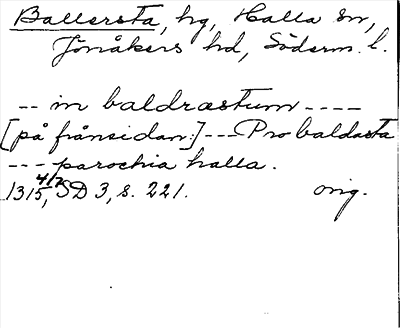 Ballersta, hg, Halla sn,
Jönåkers hd, Söderm. l.
-- in baldrastum ----
[på frånsidan:] --- Pro baldasta
--- parochia halla.
1315 4/7, SD 3, s. 221. orig.